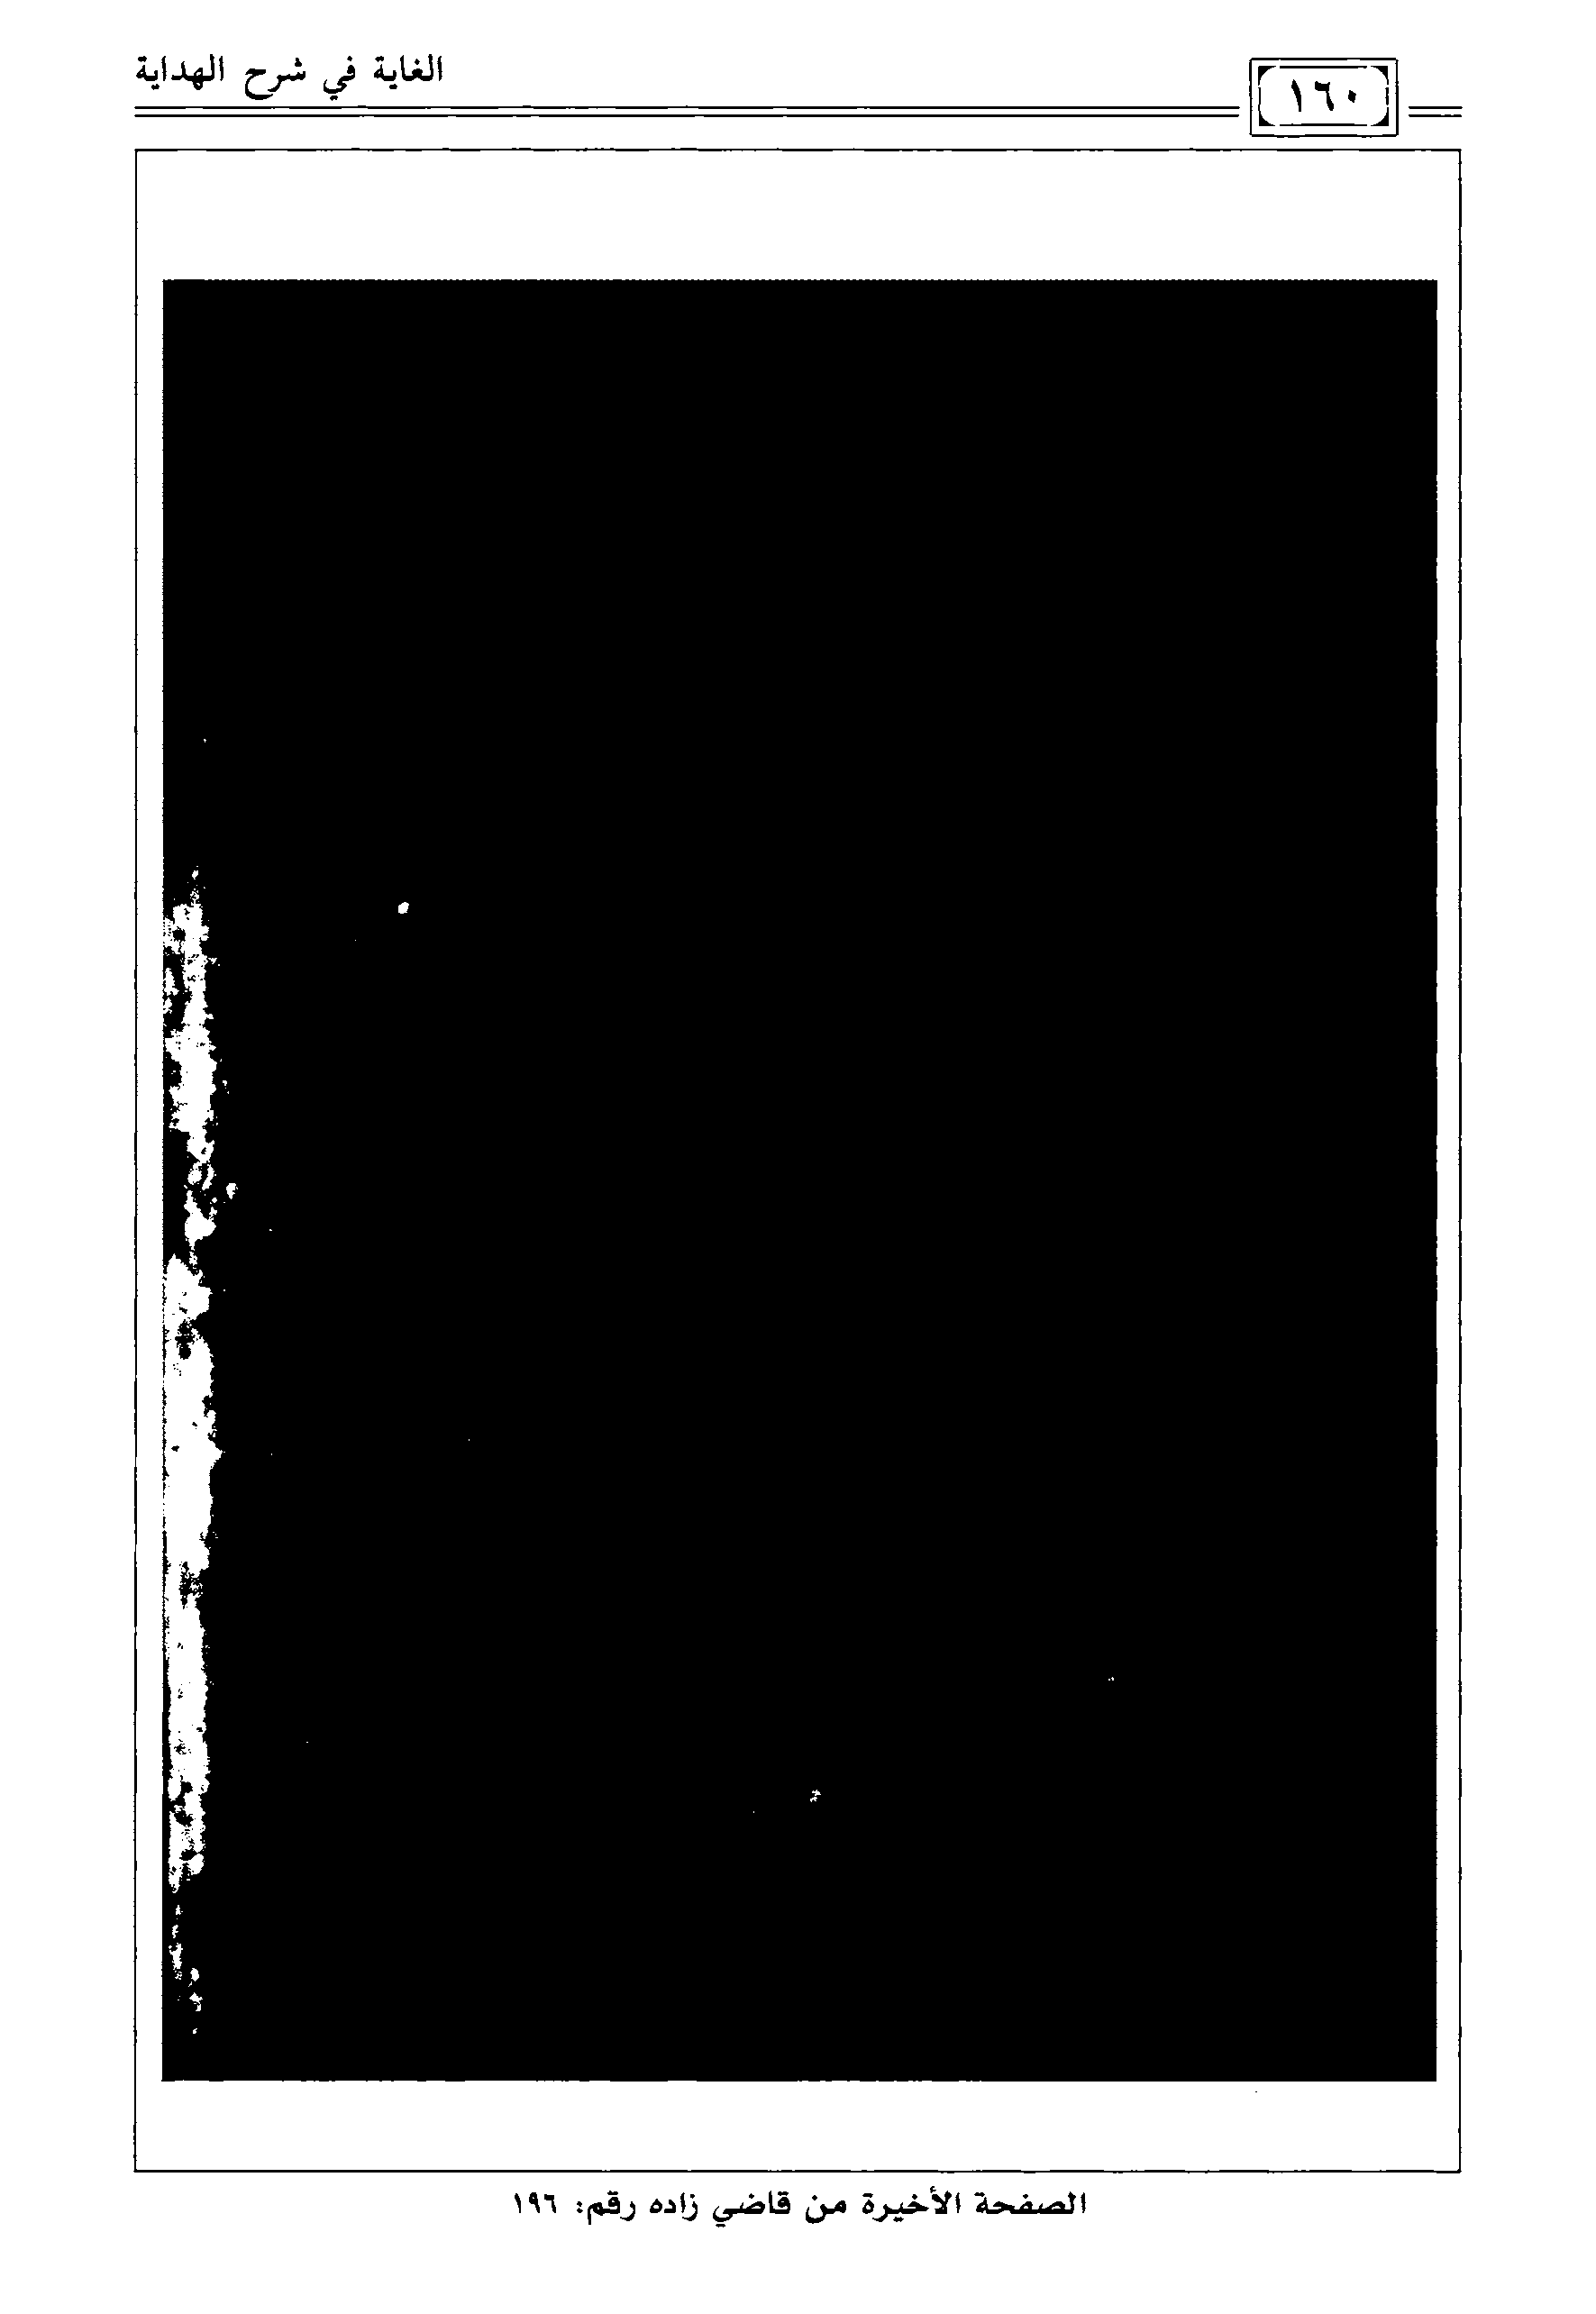 الغاية في شرح الهداية
١٦٠
الصفحة الأخيرة من قاضي زاده رقم: ١٩٦